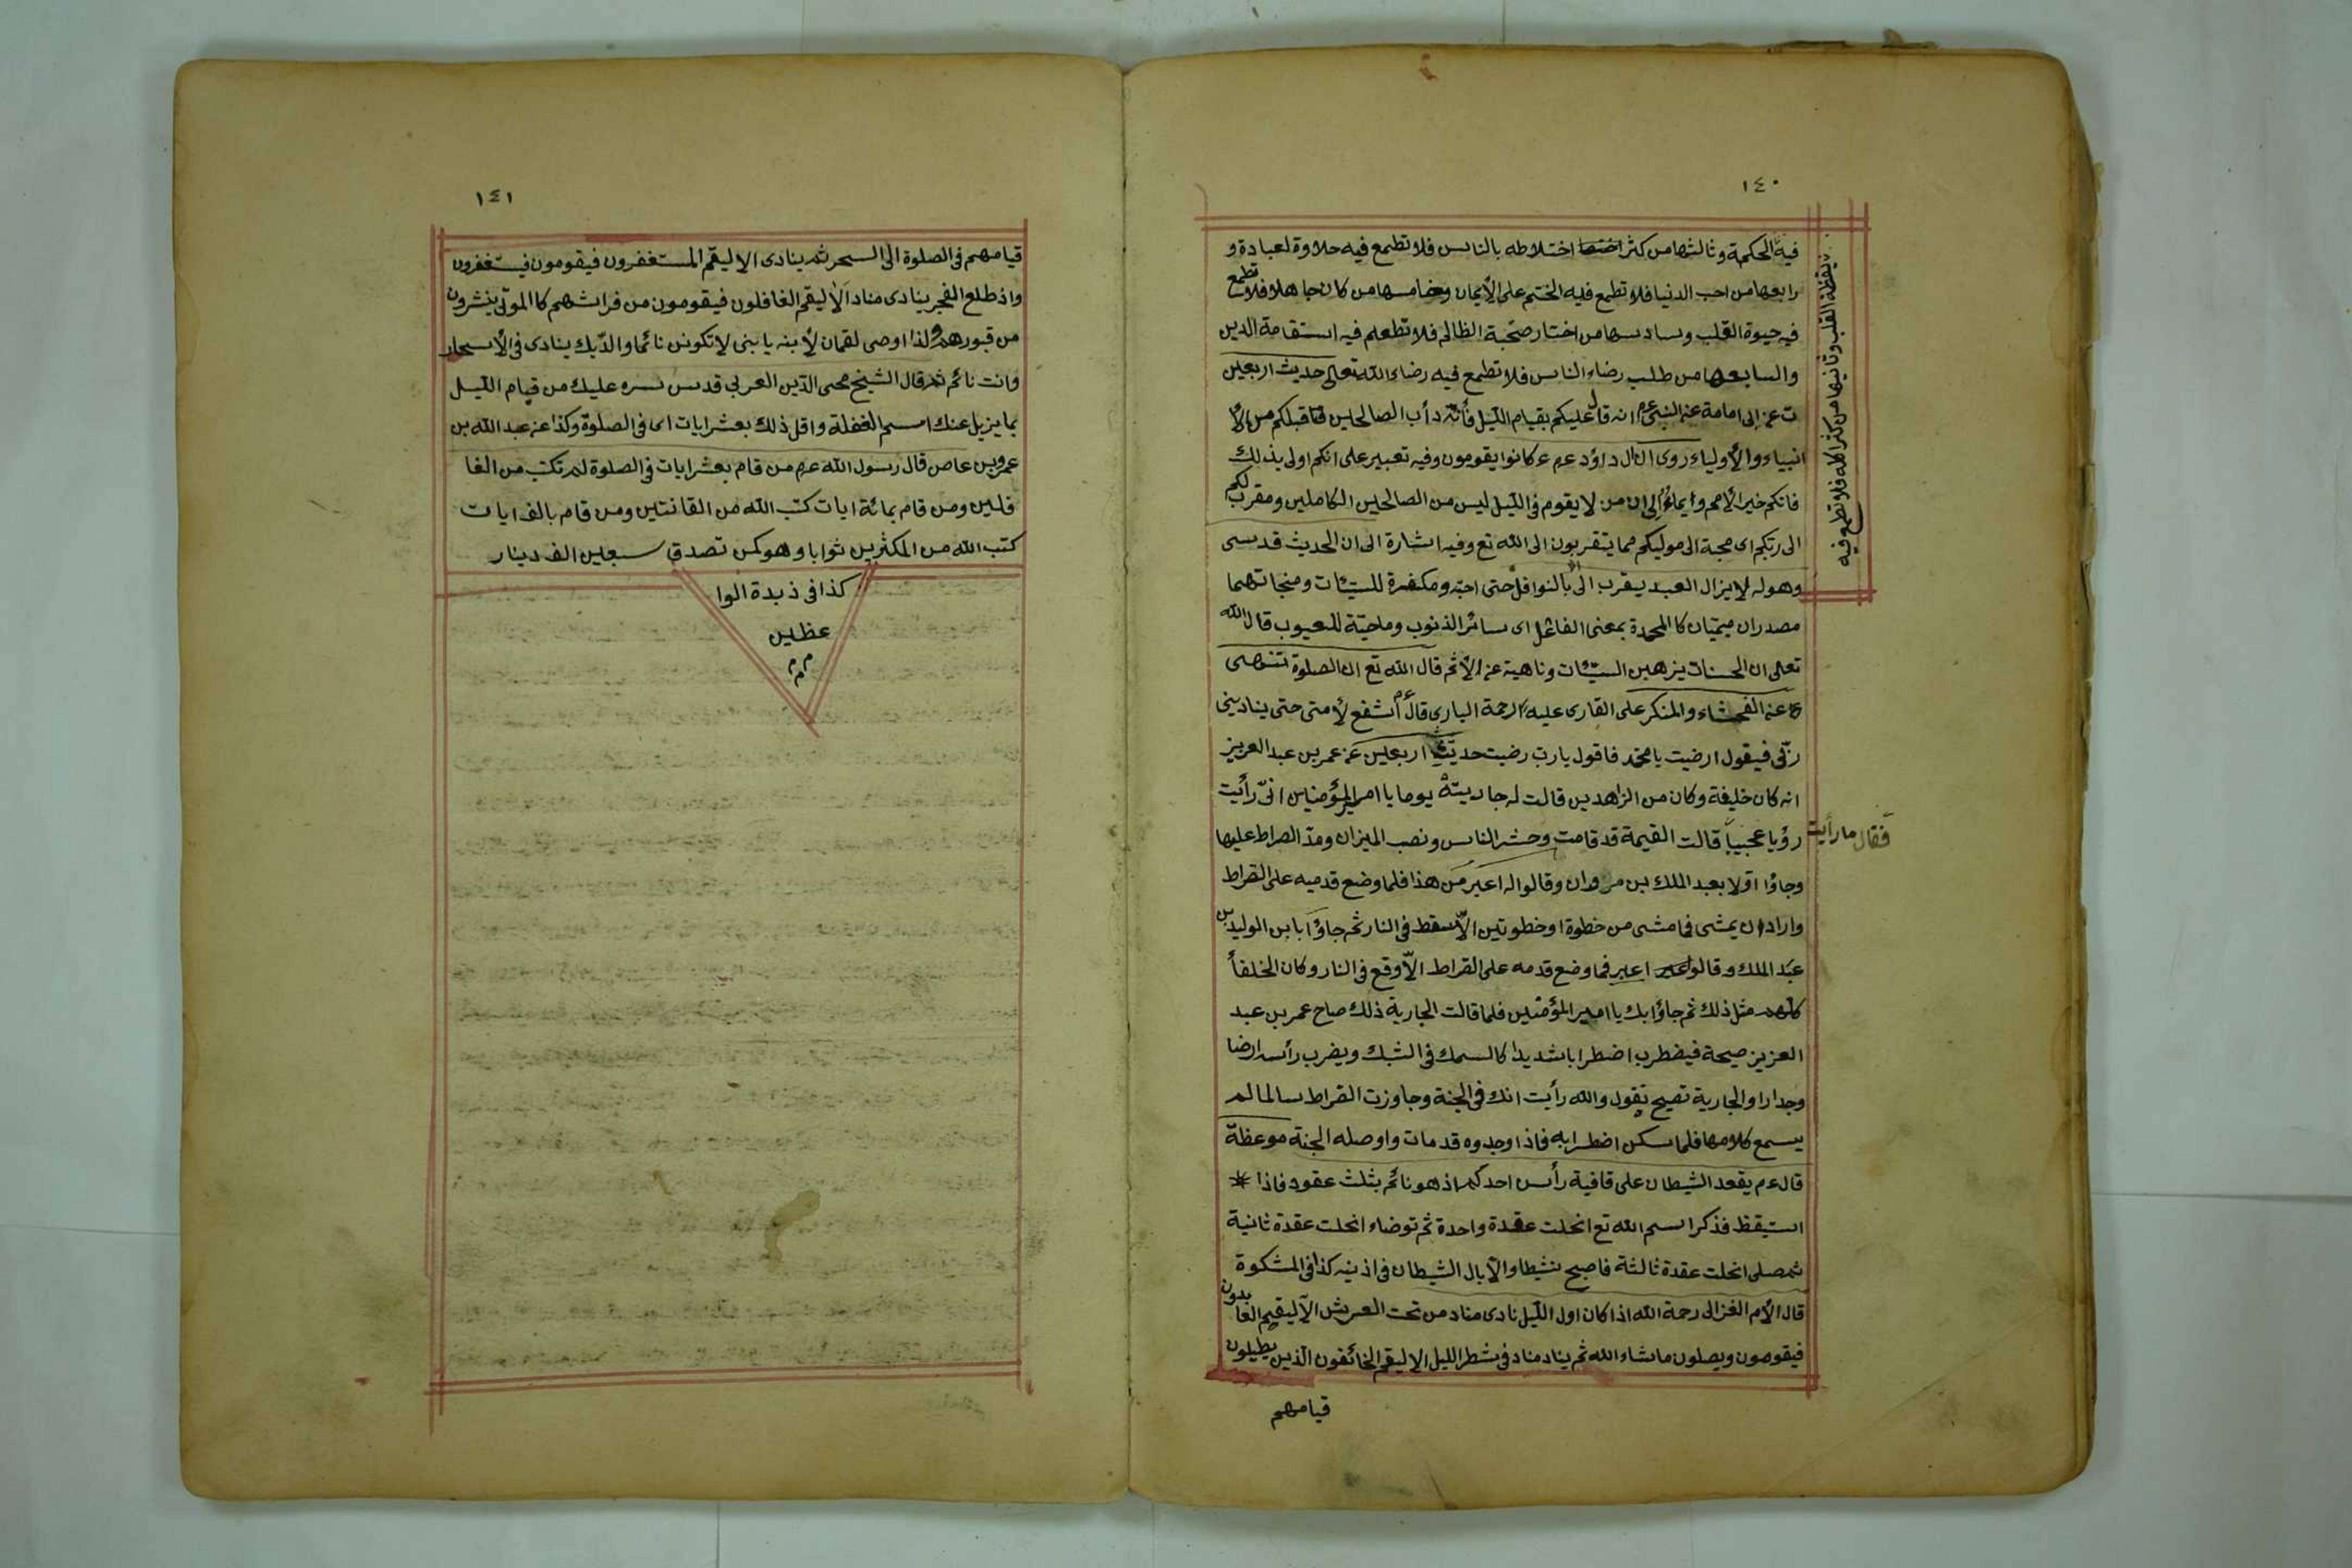 ١٤٠
فيه الحكمة وثالثها من كثر اختلاطه بالناس فلا تطمع فيه حلاوة لعبادة و
رابعها من احب الدنيا فلا تطمع فيه الختم على الأيمان وخامسها من كان جاهلا فلا تطمع
فيه حيوة القلب وسادسها من اختار صحبة الظالم فلا تطعم فيه استقامة الدين
والسابعها من طلب رضاء الناس فلا تطمع فيه رضاء الله تعالى حديث اربعين
ت عن ابى امامة عن النبى عم انه قال عليكم بقيام الليل فأنه دأب الصالحين قبلكم من الأ
انبياء والأولياء روى ان ال داؤد عم كانوا يقومون وفيه تعبير على انكم اولى بذلك
فانكم خير الأمم وايماء الى ان من لا يقوم فى الليل ليس من الصالحين الكاملين ومقرب لكم
الى ربكم اى محبة الى موليكم مما يتقربون الى الله تع وفيه اشارة الى ان الحديث قدسى
وهوله لا يزال العبد يقرب الى بالنوافل حتى احبه ومكفرة للسيئات ومنجاتهما
مصدران ميميان كالمحمدة بمعنى الفاعل اى سائر الذنوب وماحية للعيوب قال الله
تعالى ان الحسنات يذهبن السيئات وناهية عن الأثم قال الله تع ان الصلوة تنهى
عن الفحشاء والمنكر على القارى عليه الرحمة البارى قال عم أشفع لأمتى حتى ينادينى
ربى فيقول ارضيت يا محمد فاقول يا رب رضيت حديث اربعين عن عمر بن عبد العزيز
انه كان خليفة وكان من الزاهدين قالت له جاريته يوما يا امير المؤمنين انى رأيت
رؤيا عجيبا قالت القيمة قد قامت وحشر الناس ونصب الميزان ومد الصراط عليها
وجاؤا اولا بعبد الملك بن مروان وقالوا له اعبر من هذا فلما وضع قدميه على القراط
واراد ان يمشى فما مشى من خطوة او خطوتين الا سقط فى النار ثم جاؤا بابن الوليد بن
عبد الملك وقالوا اعبر فما وضع قدمه على القراط الا وقع فى النار وكان الخلفأ
كلهم مثل ذلك ثم جاؤا بك يا امير المؤمنين فلما قالت الجارية ذلك صاح عمر بن عبد
العزيز صيحة فيضطرب اضطرابا شديدا كالسمك فى الشبك ويضرب رأسه ارضا
وجدارا والجارية تصيح تقول والله رأيت انك فى الجنة وجاوزت القراط سالما لم
يسمع كلامها فلما سكن اضطرابه فاذا وجدوه قد مات واوصله الجنة موعظة
قال عم يقعد الشيطان على قافية رأس احدكم اذ هو نائم بثلث عقود فاذا *
استيقظ فذكر اسم الله تع انحلت عقدة واحدة ثم توضاء انحلت عقدة ثانية
ثم صلى انحلت عقدة ثالثة فاصبح نشيطا والا بال الشيطان فى اذنيه كذا فى المشكوة
قال الأم الغزالى رحمة الله اذا كان اول الليل نادى مناد من تحت العرش الا ليقيم العا بدون
فيقومون ويصلون ماشاء الله ثم يناد مناد فى شطر الليل الا ليقم الخائفون الذين يطيلون
قيامهم
يقظة القلب وثانيها من كثر اكله فلا تطمع فيه
فقال ما رأيت
١٤١
قيامهم فى الصلوة الى السحر ثم ينادى الا ليقم المستغفرون فيقومون فيستغفرون
واذ طلع الفجر ينادى مناد الا ليقم الغافلون فيقومون من فراشهم كالموتى ينشرون
من قبورهم ولذا اوصى لقمان لأبنه يا بنى لا تكونن نائما والديك ينادى فى الأسحار
وانت نائم ثم قال الشيخ محى الدين العربى قدس سره عليك من قيام الليل
بما يزيل عنك اسم الغفلة واقل ذلك بعشر ايات اى فى الصلوة وكذا عن عبد الله بن
عمرو بن عاص قال رسول الله عم من قام بعشر ايات فى الصلوة لم تكتب من الغا
فلين ومن قام بمائة ايات كتب الله من القانتين ومن قام بالف ايات
كتب الله من المكثرين ثوابا وهو كمن تصدق سبعين الف دينار
كذا فى ذبدة الوا
عظين
م م م